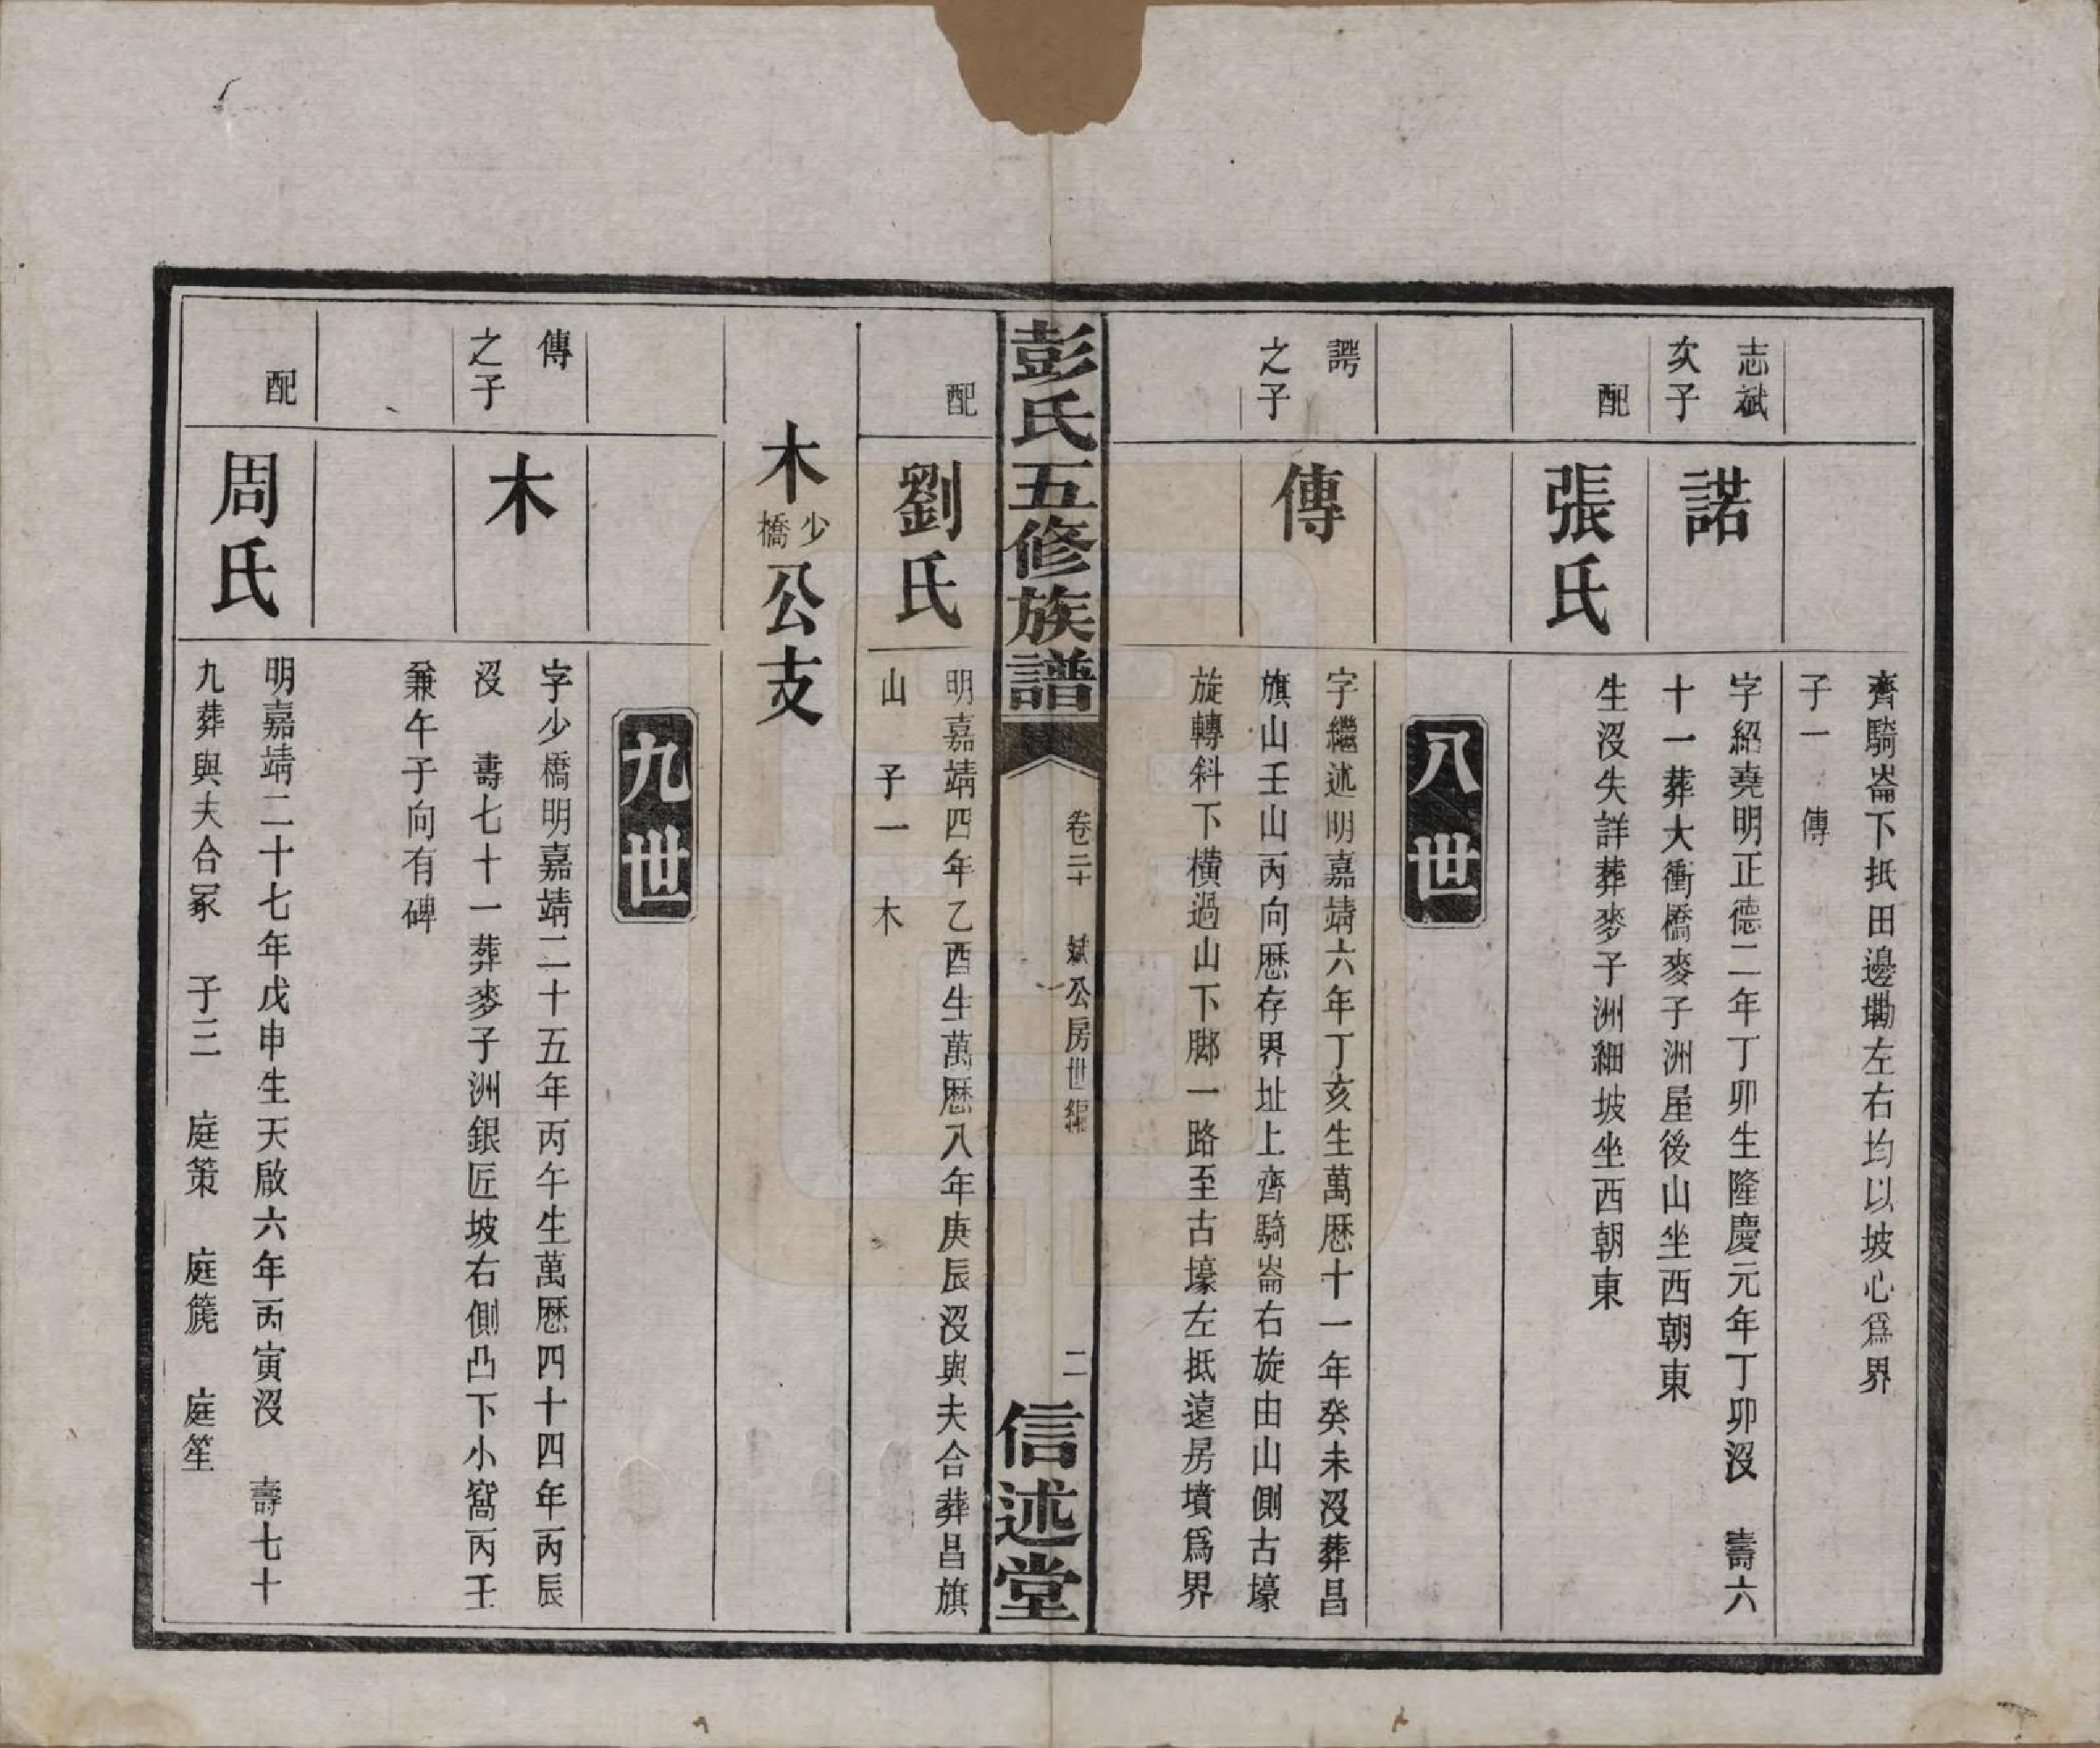 齊騎崙下抵田邊墈左右均以坡心爲界
子一　傳
志斌
次子
諾
字紹堯明正德二年丁卯生隆慶元年丁卯沒　壽六
十一葬大衝橋麥子洲屋後山坐西朝東
配
張氏
生沒失詳葬麥子洲細坡坐西朝東
八世
諤
之子
傳
字繼述明嘉靖六年丁亥生萬歷十一年癸未沒葬昌
旗山壬山丙向歷存界址上齊騎崙右旋由山側古壕
旋轉斜下橫過山下腳一路至古壕左抵遠房墳爲界
彭氏五修族譜
卷二十　斌公房世編
二
信述堂
配
劉氏
明嘉靖四年乙酉生萬歷八年庚辰沒與夫合葬昌旗
山　子一　木
木少橋公支
九世
傳
之子
木
字少橋明嘉靖二十五年丙午生萬歷四十四年丙辰
沒　壽七十一葬麥子洲銀匠坡右側凸下小窩丙壬
兼午子向有碑
配
周氏
明嘉靖二十七年戊申生天啟六年丙寅沒　壽七十
九葬與夫合冢　子三　庭策　庭篪　庭笙